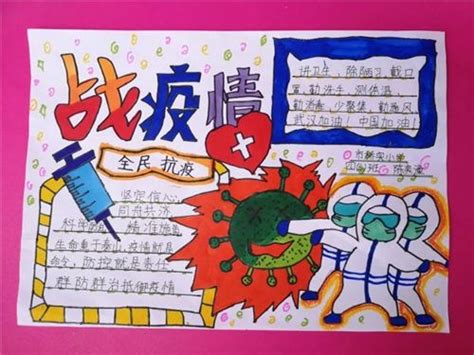 战疫情
全民抗疫
讲卫生、除陋习、戴口
罩、勤洗手、测体温、
勤消毒、少聚集、勤通风
武汉加油！中国加油！
坚定信心
同舟共济
科学防 精准施
生命重于泰山,疫情就是
命令,防控就是责任
群防群治抵御疫情